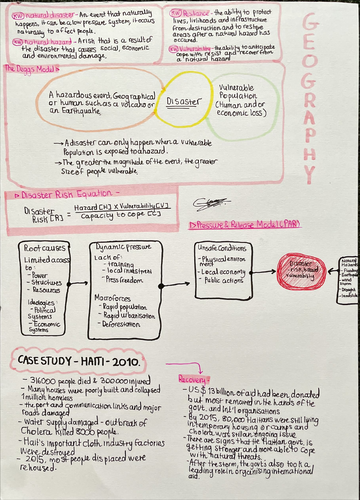 KW natural disaster - An event that naturally
happens, it can be a low pressure system, it occurs
naturally to affect people.
KW natural hazard - A risk that is a result of
the disaster that causes social, economic
and environmental damage.
KW Resilience - the ability to protect
lives, livelihoods and infrastructure
from destruction and to restore
areas after a natural hazard has
occured.
KW Vulnerability - the ability to anticipate
cope with resist and recover from
a natural hazard
GEOGRAPHY
The Deggs Model
A hazardous event, Geographical
or human such as a volcano or
an Earthquake.
Disaster
Vulnerable
Population
(Human and/or
economic loss)
→ A disaster can only happen when a vulnerable
Population is exposed to a hazard.
→ The greater the magnitude of the event, the greater
size of people vulnerable
Disaster Risk Equation -
Disaster Risk [R] = Hazard [H] x Vulnerability [V]
Capacity to cope [C]
Pressure & Release Model (PAR)
Root causes
Limited access
to:
- Power
- Structures
- Resources
Ideologies
- Political
Systems
- Economic
Systems
Dynamic pressure
Lack of:
- training
- local industries
- Press freedom
Macroforces
- Rapid population
- Rapid urbanisation
- Deforestation
Unsafe Conditions
- Physical environ
ment
- Local economy
- Public actions
Disaster
risk
vulnerability
CASE STUDY - HAITI - 2010
- 316000 people died & 300000 injured
- Many houses were poorly built and collapsed
1 million homeless
- the port and communication links and major
roads damaged
- Water supply damaged - outbreak of
Cholera killed 8000 people.
- Haiti's important cloth industry factories
were destroyed
- 2015, most people displaced were
rehoused.
Recovery
- US $13 billion of aid had been donated
but most remained in the hands of the
govt. and Int'l organisations
- By 2015, 80000 Haitians were still living
in temporary housing or camps and
Cholera was still an ongoing issue
- There are signs that the Haitian govt. is
getting stronger and more able to cope
with natural threats.
- After the storm, the govt. also took a
leading role in organising international
aid.